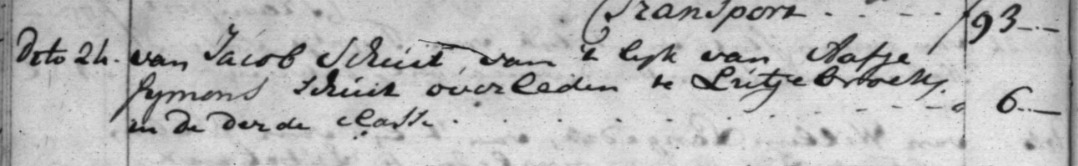 Transport . . . . . ƒ 93.. —
Dito 24. van Jacob Schuit, van 't lyk van Aafje
Symons Schuit overleden te Lutjebroek,
in de derde Classe . . . . . . . . . . „ 6.. —